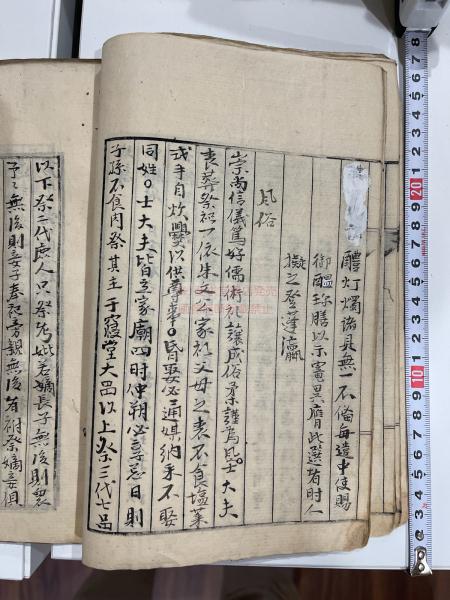 醴灯燭諸具無一不備每遣中使賜
御醞珍膳以示寵異膺此選者時人
擬之登瀛
風俗
崇尚信義篤好儒術禮讓成俗柔謹為風士大夫
喪葬祭祀一依朱文公家礼父母之喪不食塩菜
或手自炊爨以供尊事。昏娶必通媒納采不娶
同姓。士大夫皆立家廟四時仲朔必享忌日則
子孫不食肉祭其主于寢堂大
以上祭三代七品
以下祭二代庶人只祭考妣若嫡長子無後則衆
子々無後則妾子奉祀旁親無後者祔祭嫡妾俱